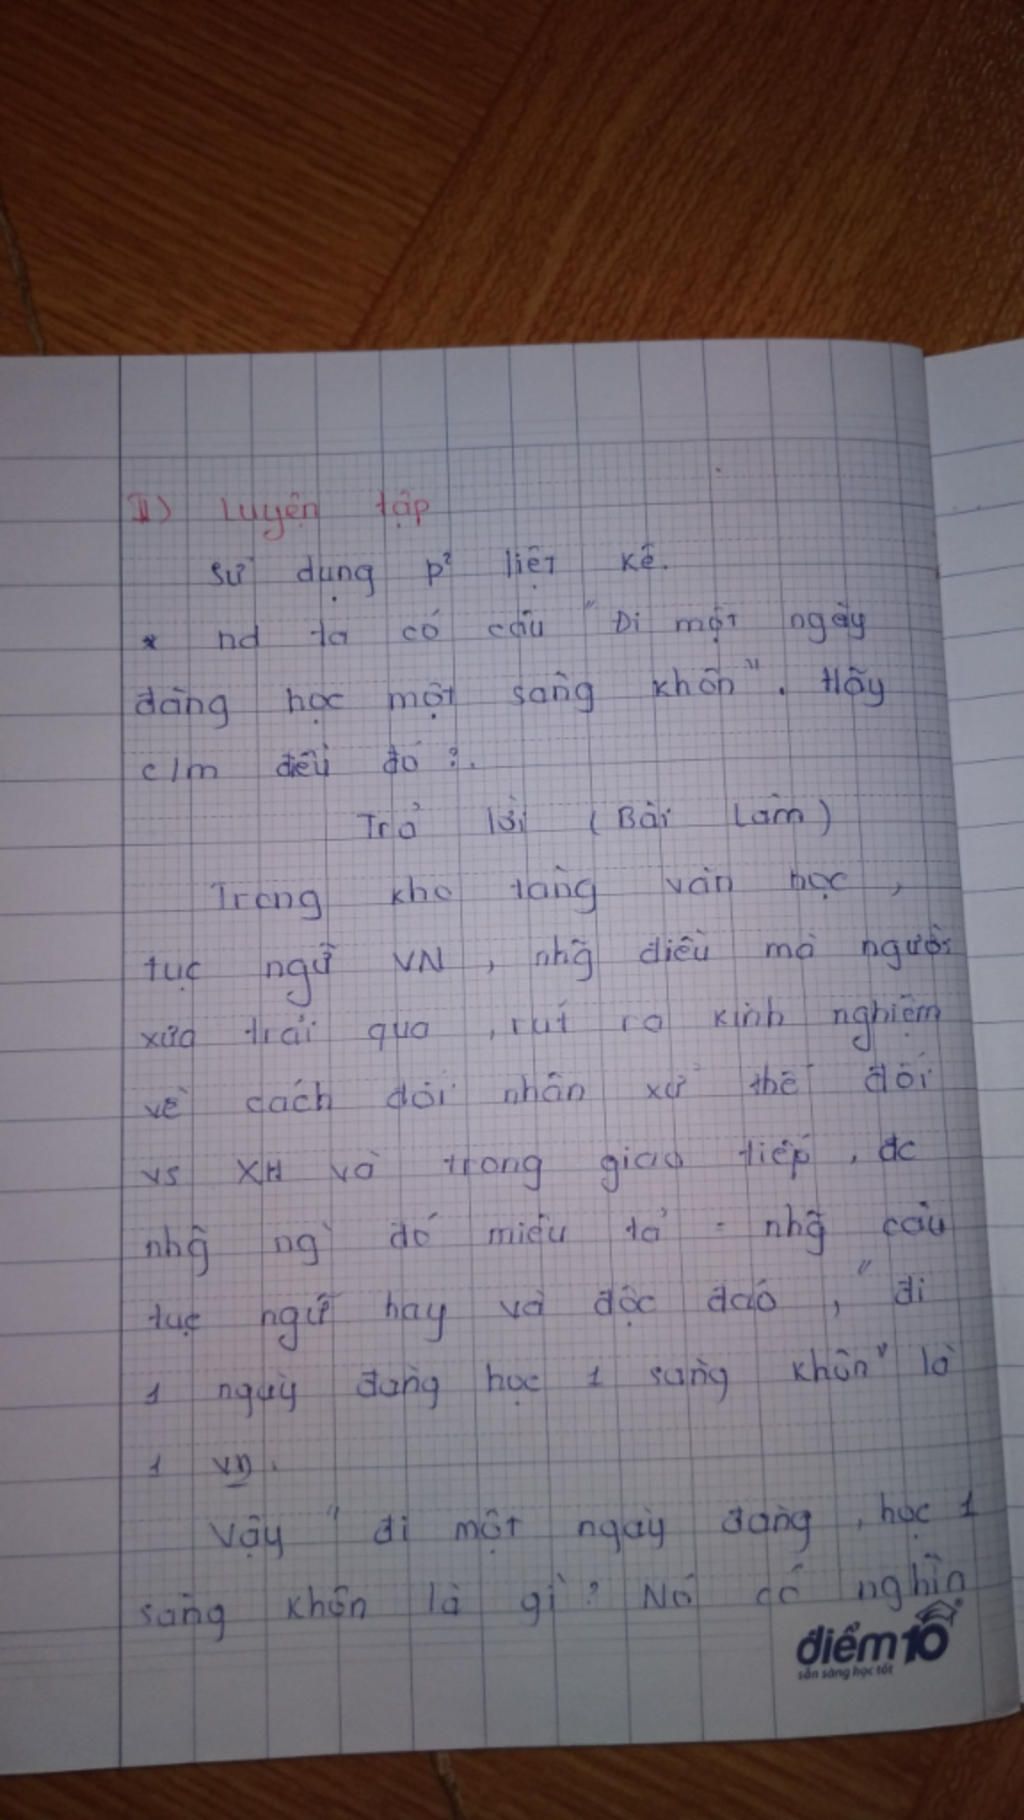 II) Luyện tập
Sử dụng p² liệt kê.
* nd ta có câu "Đi một ngày
đàng học một sàng khôn". Hãy
c/m điều đó?.
Trả lời (Bài Làm)
Trong kho tàng văn học,
tục ngữ VN, nhg̃ điều mà người
xưa trải qua, rút ra kinh nghiệm
về cách đối nhân xử thế đối
vs XH và trong giao tiếp, đc
nhg̃ ng` đó miêu tả = nhg̃ câu
tục ngữ hay và độc đáo, "đi
1 ngày đàng học 1 sàng khôn" là
1 VD.
Vậy "đi một ngày đàng, học 1
sàng khôn là gì? Nó có nghìn
điểm10
sẵn sàng học tốt